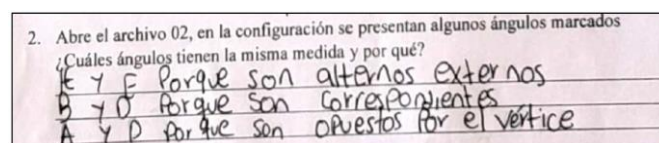 2. Abre el archivo 02, en la configuración se presentan algunos ángulos marcados
¿Cuáles ángulos tienen la misma medida y por qué?
E y F Porque son alternos externos
B y D Porque son correspondientes
A y D porque son opuestos por el vértice